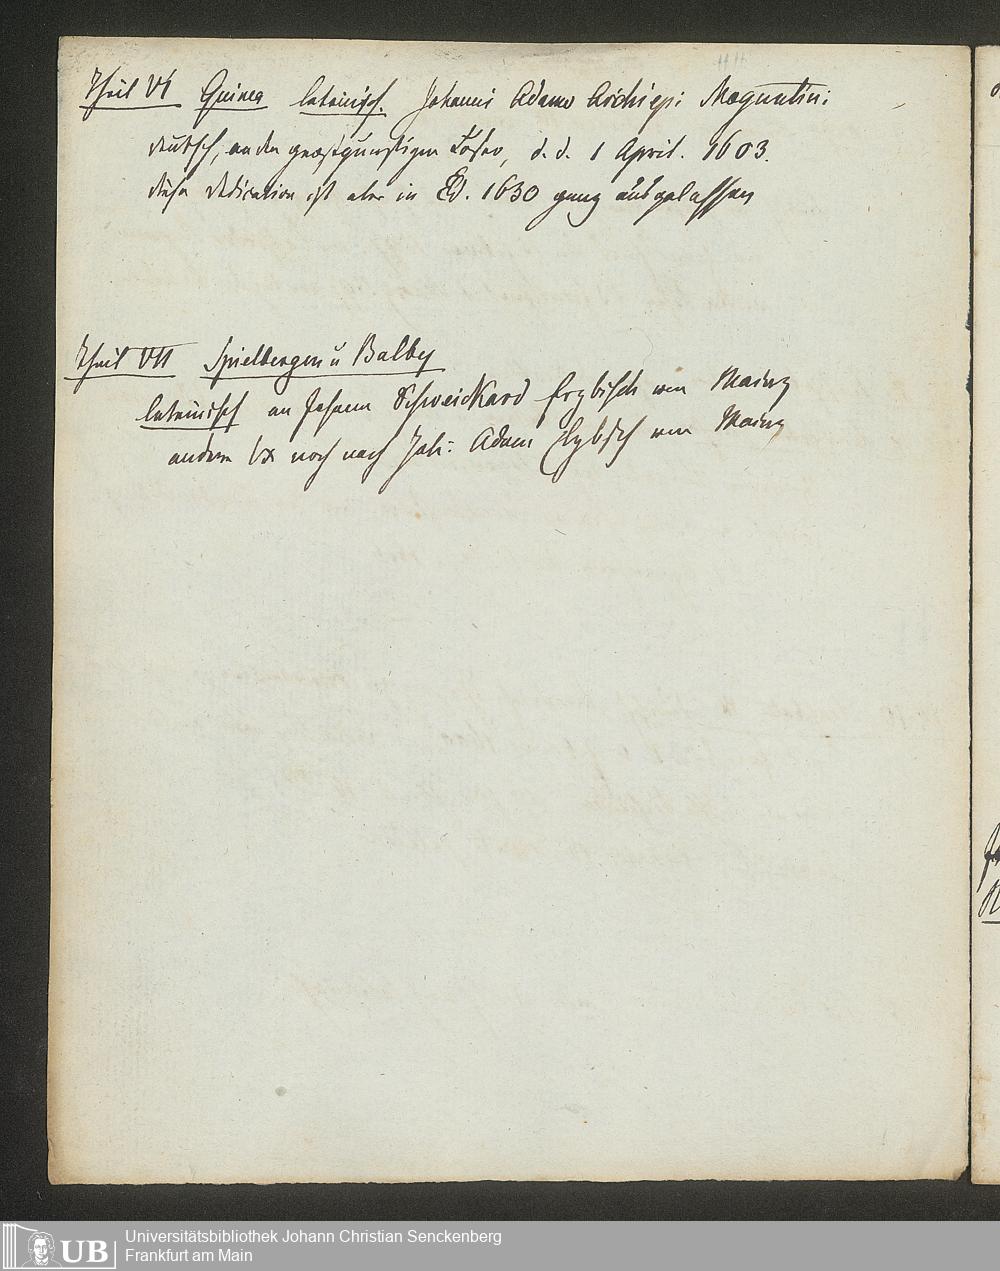 Theil VI Guinea lateinisch. Johanni Adamo Archiepi: Moguntin:
deutsch, an den großgünstigen Leser, d. d. 1 April. 1603.
diese Dedication ist aber in Ed. 1630 ganz ausgelassen
Theil VII Spielbergen u Balby
lateinisch an Johann Schweickard Erzbisch von Mainz
andere noch nach Joh: Adam Erzbisch von Mainz
UB Universitätsbibliothek Johann Christian Senckenberg
Frankfurt am Main